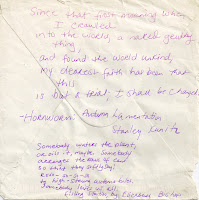 Since that first morning when
I crawled
into the world, a naked grubby
thing,
and found the world unkind,
my dearest faith has been that
this
is but a trial; I shall be changed.
-Hornworm: Autumn Lamentation
Stanley Kunitz
Somebody waters the plant,
or oils it, maybe. Somebody
arranges the rows of cans
so that they softly say,
ESSO-SO-SO-SO
to high-strung automobiles.
Somebody loves us all.
(Filling Station, by Elizabeth Bishop)